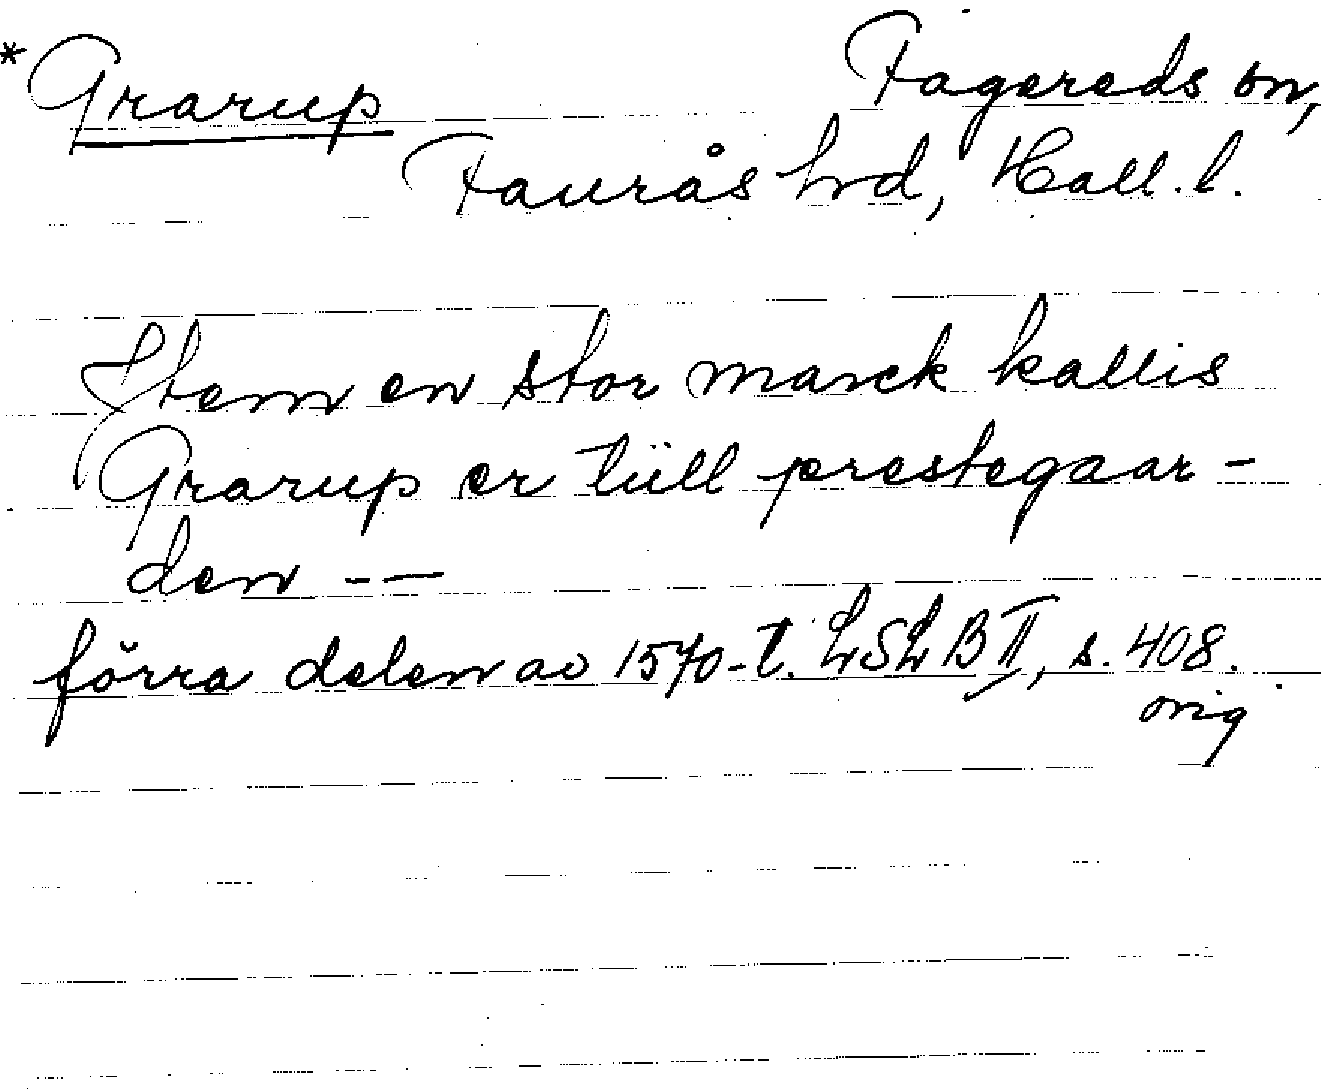 *Grarup Fagereds sn,
Faurås hd, Hall. l.
Item en stor marck kallis
Grarup er tüll prestegaar-
den --
förra delen av 1570-t. LSL B II, s. 408.
orig